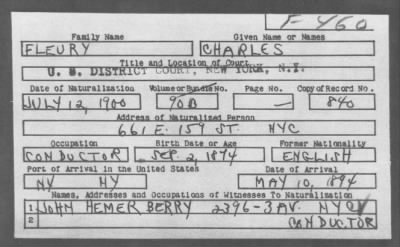 F-460
Family Name Given Name or Names
FLEURY CHARLES
Title and Location of Court
U. S. DISTRICT COURT, NEW YORK, N.Y.
Date of Naturalization Volume or Bundle No. Page No. Copy of Record No.
JULY 12, 1900 90B — 840
Address of Naturalized Person
661 E. 159 ST. NYC
Occupation Birth Date or Age Former Nationality
CONDUCTOR SEP. 2, 1874 ENGLISH
Port of Arrival in the United States Date of Arrival
NY NY MAY 10, 1894
Names, Addresses and Occupations of Witnesses To Naturalization
1 JOHN HEMER BERRY 2396-3 AV. NYC
2 CONDUCTOR